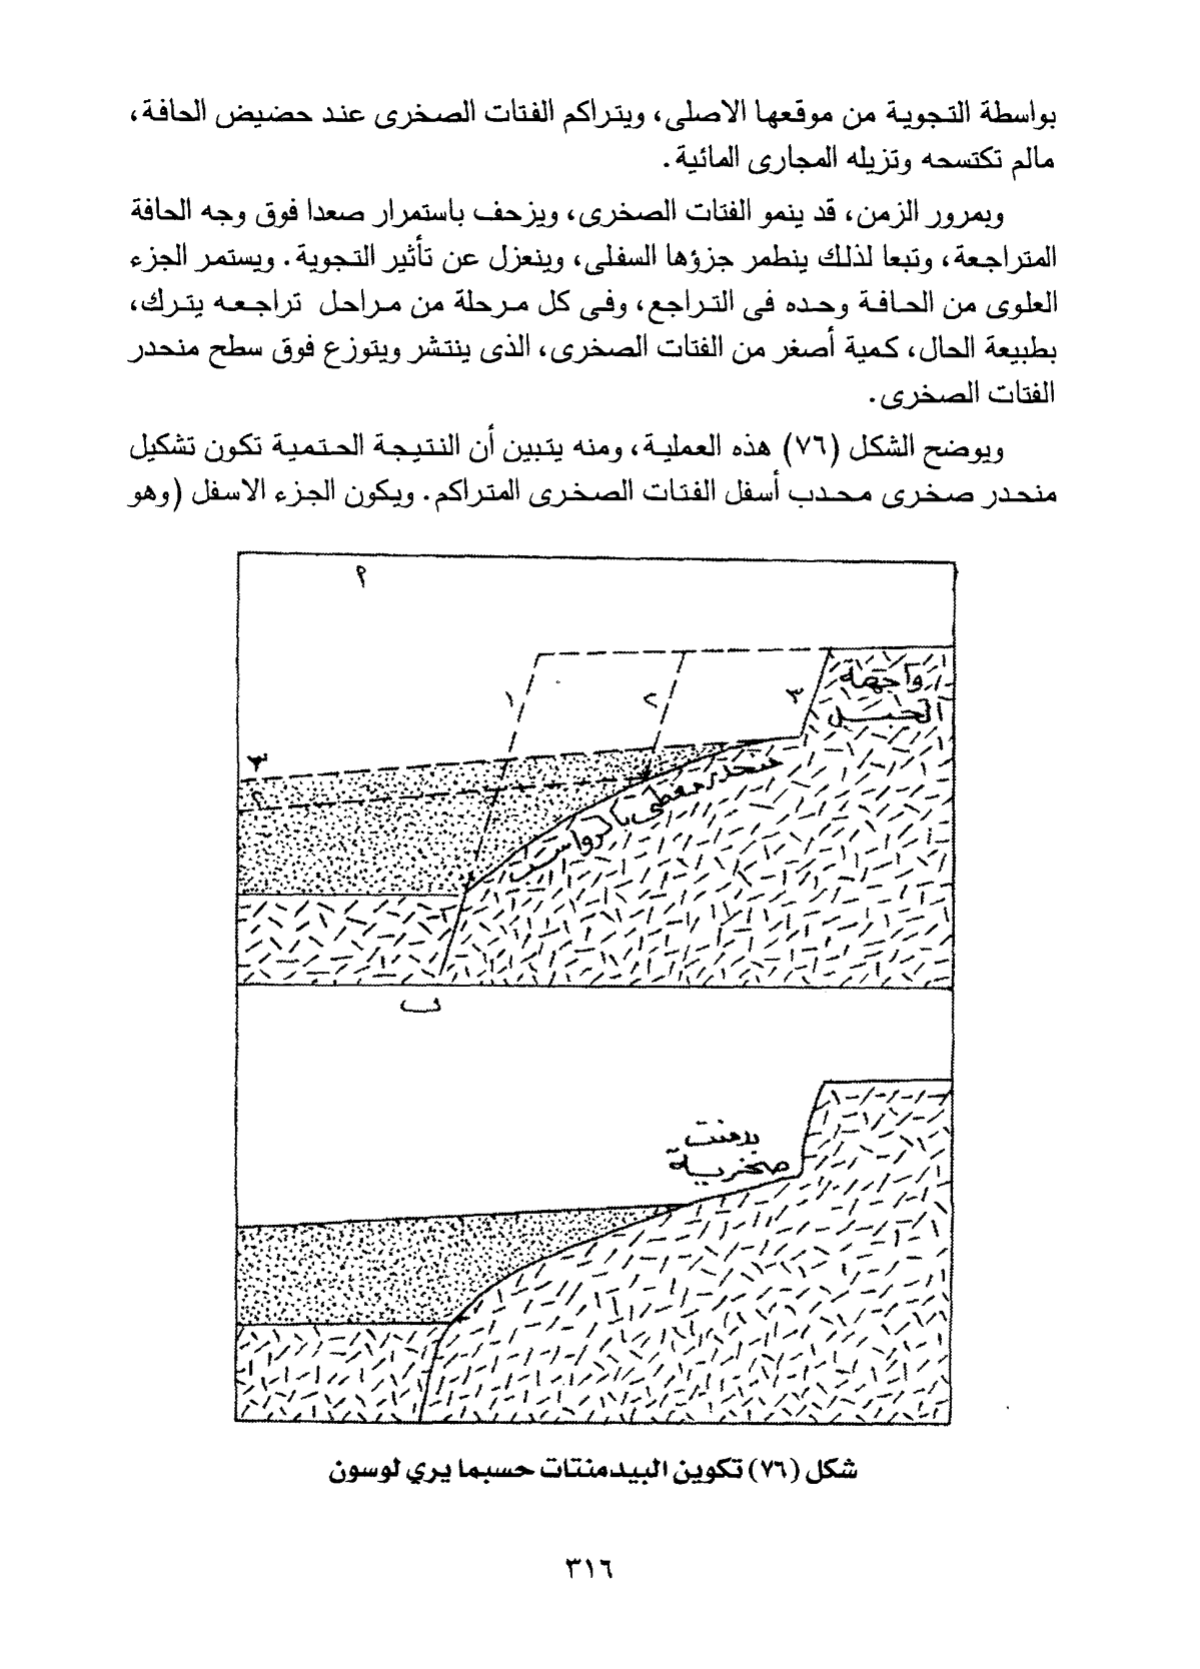 بواسطة التجوية من موقعها الاصلى، ويتراكم الفتات الصخرى عند حضيض الحافة،
مالم تكتسحه وتزيله المجارى المائية.
وبمرور الزمن، قد ينمو الفتات الصخرى، ويزحف باستمرار صعدا فوق وجه الحافة
المتراجعة، وتبعا لذلك ينطمر جزؤها السفلى، وينعزل عن تأثير التجوية. ويستمر الجزء
العلوى من الحافة وحده فى التراجع، وفى كل مرحلة من مراحل تراجعه يترك،
بطبيعة الحال، كمية أصغر من الفتات الصخرى، الذى ينتشر ويتوزع فوق سطح منحدر
الفتات الصخرى.
ويوضح الشكل (٧٦) هذه العملية، ومنه يتبين أن النتيجة الحتمية تكون تشكيل
منحدر صخرى محدب أسفل الفتات الصخرى المتراكم. ويكون الجزء الاسفل (وهو
م
واجهة
الجبل
١
٢
٣
٣
٢
منحدر مغطى بالرواسب
ب
بدمنت
صخرية
شكل (٧٦) تكوين البيدمنتات حسبما يري لوسون
٣١٦